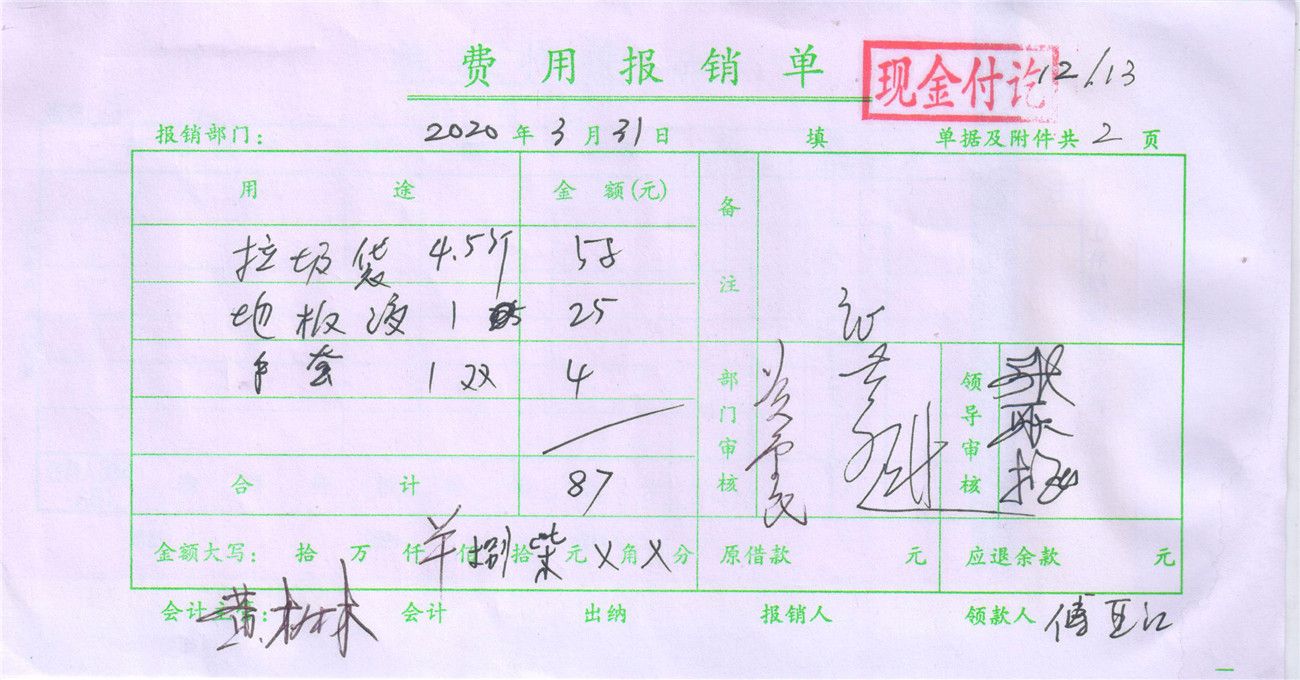 费用报销单 现金付讫 12/13
报销部门: 2020年3月31日 填 单据及附件共2页
用途 金额(元) 备注
垃圾袋 4.5斤 58
地板液 1 25
手套 1双 4
部门审核 领导审核
合计 87
金额大写: 拾万仟佰捌拾柒元X角X分 原借款 元 应退余款 元
会计主管: 会计 出纳 报销人 领款人